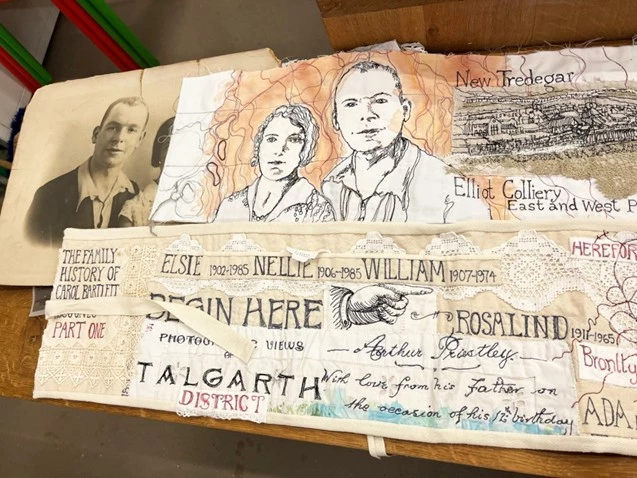 New Tredegar
Elliot Colliery
East and West P
THE FAMILY
HISTORY OF
CAROL BARTLETT
PART ONE
ELSIE 1902-1985 NELLIE 1906-1985 WILLIAM 1907-1974
BEGIN HERE
ROSALIND 1911-1965
PHOTOG IC VIEWS
Arthur Priestley
TALGARTH
DISTRICT
With love from his Father on
the occasion of his 12th birthday
HEREFOR
Bronlly
ADA